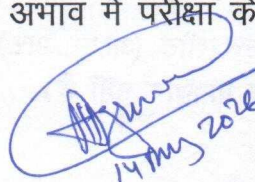 अभाव में परीक्षा के
14 May 2026